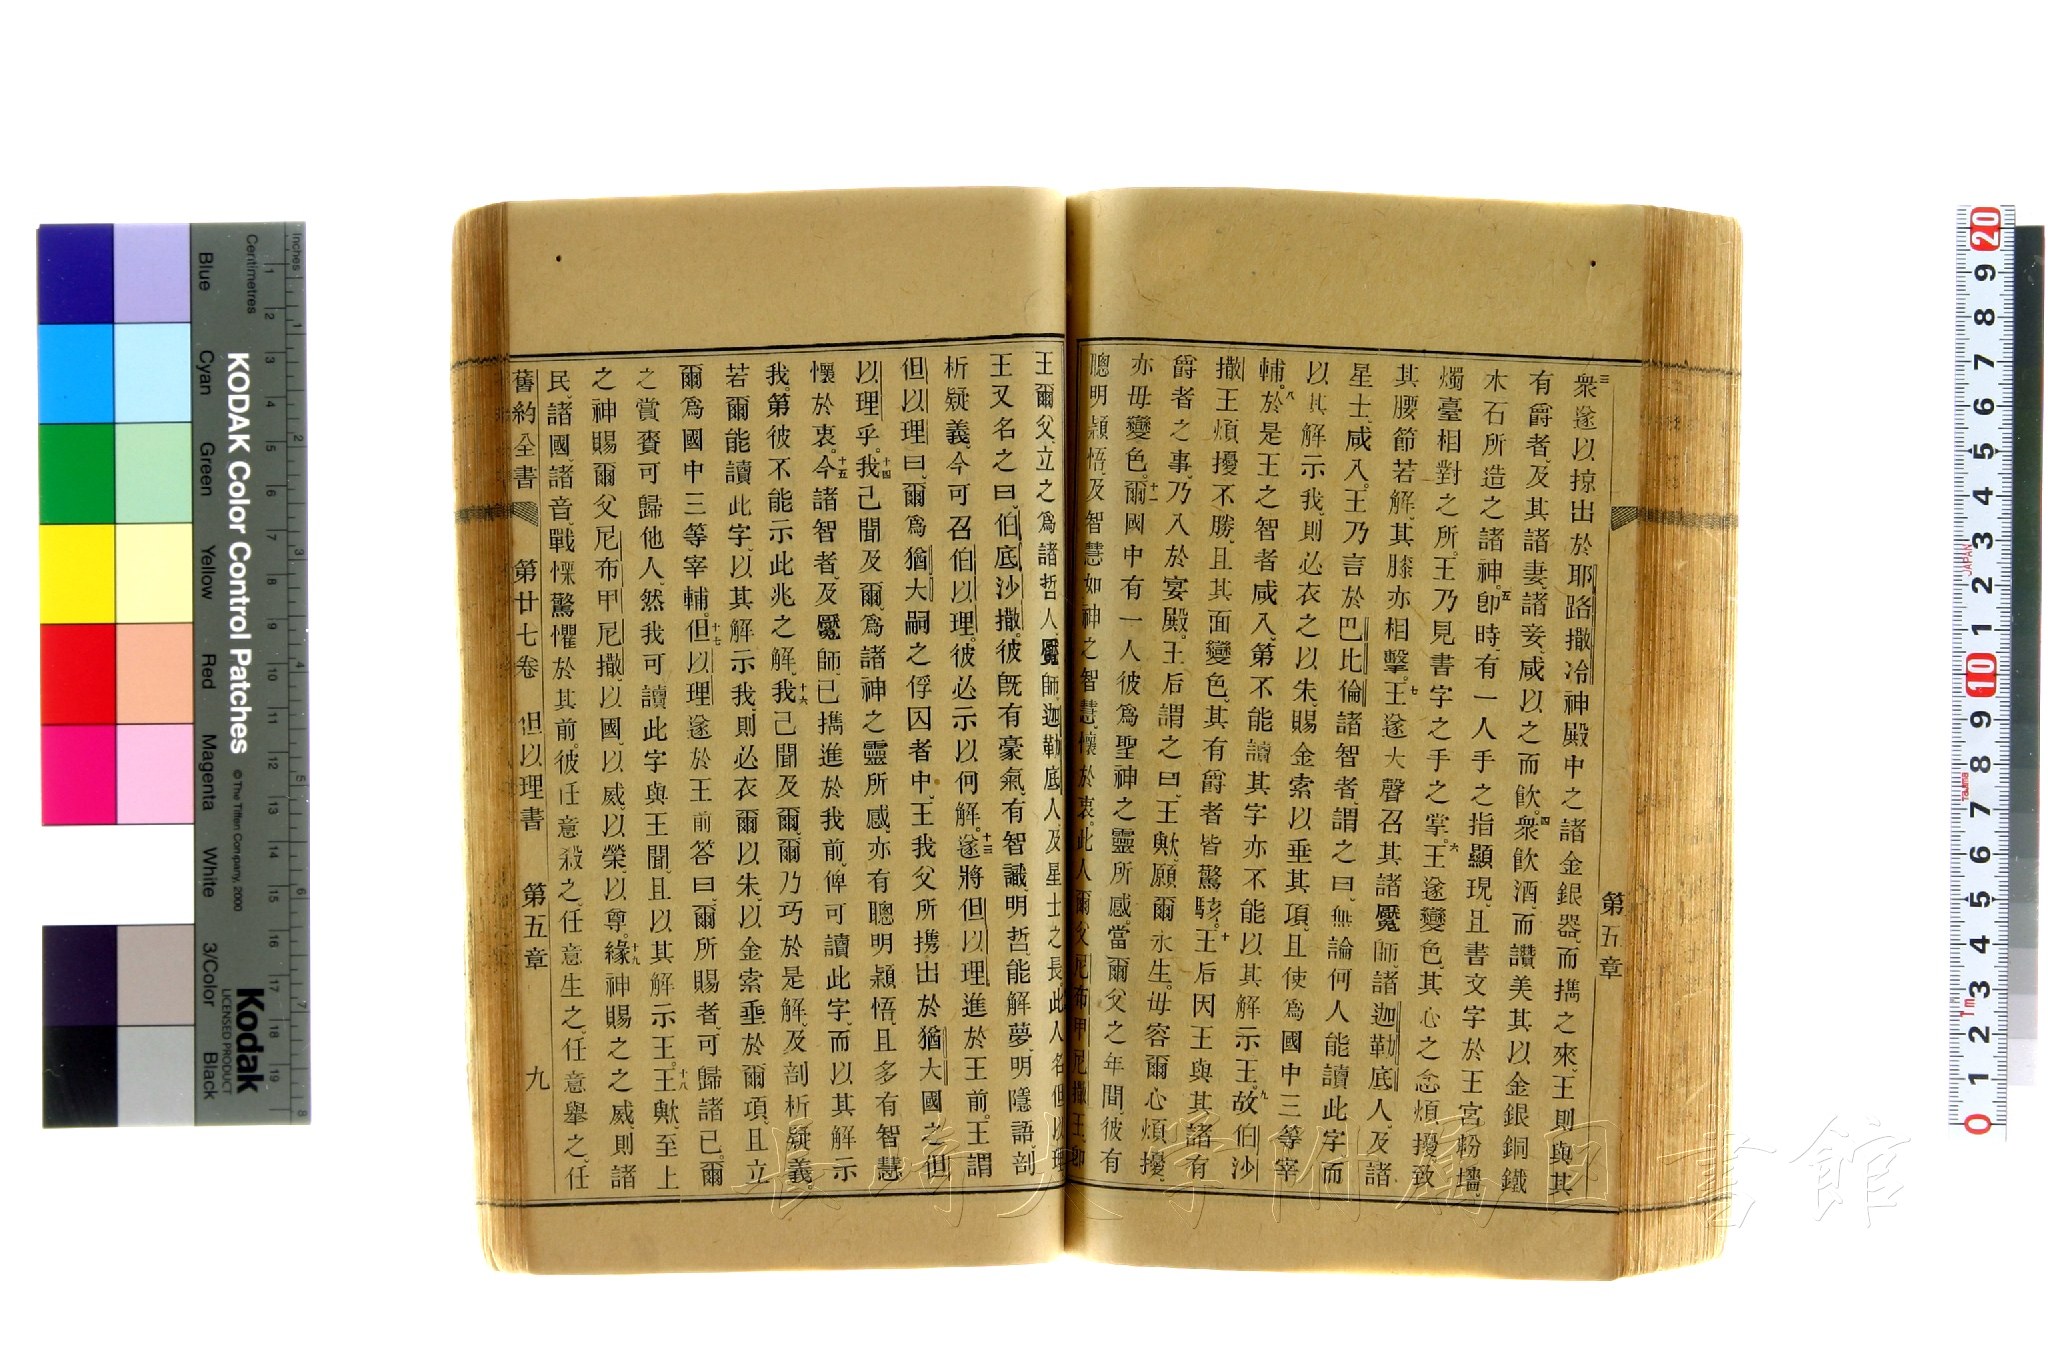 第五章
三衆遂以掠出於耶路撒冷神殿中之諸金銀器、而攜之來、王則與其
有爵者、及其諸妻、諸妾、咸以之而飲。四衆飲酒、而讚美其以金銀銅鐵
木石所造之諸神。五卽時、有一人手之指顯現、且書文字於王宮粉墻、
燭臺相對之所。王乃見書字之手之掌。六王遂變色、其心之念煩擾、致
其腰節若解、其膝亦相擊。七王遂大聲召其諸魘師、諸迦勒底人、及諸
星士、咸入。王乃言於巴比倫諸智者、謂之曰、無論何人能讀此字、而
以其解示我、則必衣之以朱、賜金索以垂其項、且使爲國中三等宰
輔。八於是王之智者咸入、第不能讀其字、亦不能以其解示王。九故伯沙
撒王煩擾不勝、且其面變色、其有爵者皆驚駭。十王后因王與其諸有
爵者之事、乃入於宴殿。王后謂之曰、王歟、願爾永生。毋容爾心煩擾、
亦毋變色。十一爾國中有一人、彼爲聖神之靈所感。當爾父之年間、彼有
聰明穎悟、及智慧如神之智慧、懷於衷。此人爾父尼布甲尼撒王、卽
王爾父、立之爲諸哲人、魘師、迦勒底人、及星士之長。此人名但以理、
王又名之曰、伯底沙撒。彼旣有豪氣、有智識、明哲、能解夢、明隱語、剖
析疑義。今可召伯以理、彼必示以何解。十三遂將但以理、進於王前。王謂
但以理曰、爾爲猶大嗣之俘囚者中、王我父所攜、出於猶大國之但
以理乎。十四我已聞及爾、爲諸神之靈所感、亦有聰明穎悟、且多有智慧
懷於衷。十五今諸智者、及魘師、已攜進於我前、俾可讀此字、而以其解示
我。第彼不能示此兆之解。十六我已聞及爾、爾乃巧於是解、及剖析疑義。
若爾能讀此字、以其解示我、則必衣爾以朱、以金索垂於爾項、且立
爾爲國中三等宰輔。十七但以理遂於王前答曰、爾所賜者、可歸諸己。爾
之賞賚可歸他人、然我可讀此字與王聞、且以其解示王。十八王歟、至上
之神賜爾父尼布甲尼撒、以國、以威、以榮、以尊。十九緣神賜之之威、則諸
民、諸國、諸音、戰慄驚懼於其前。彼任意殺之、任意生之、任意舉之、任
舊約全書 第廿七卷 但以理書 第五章 九
KODAK Color Control Patches
Kodak
LICENSED PRODUCT
© The Tiffen Company, 2000
Inches
Centimetres
Blue Cyan Green Yellow Red Magenta White 3/Color Black
JAPAN
Tajima
長崎大学附属図書館